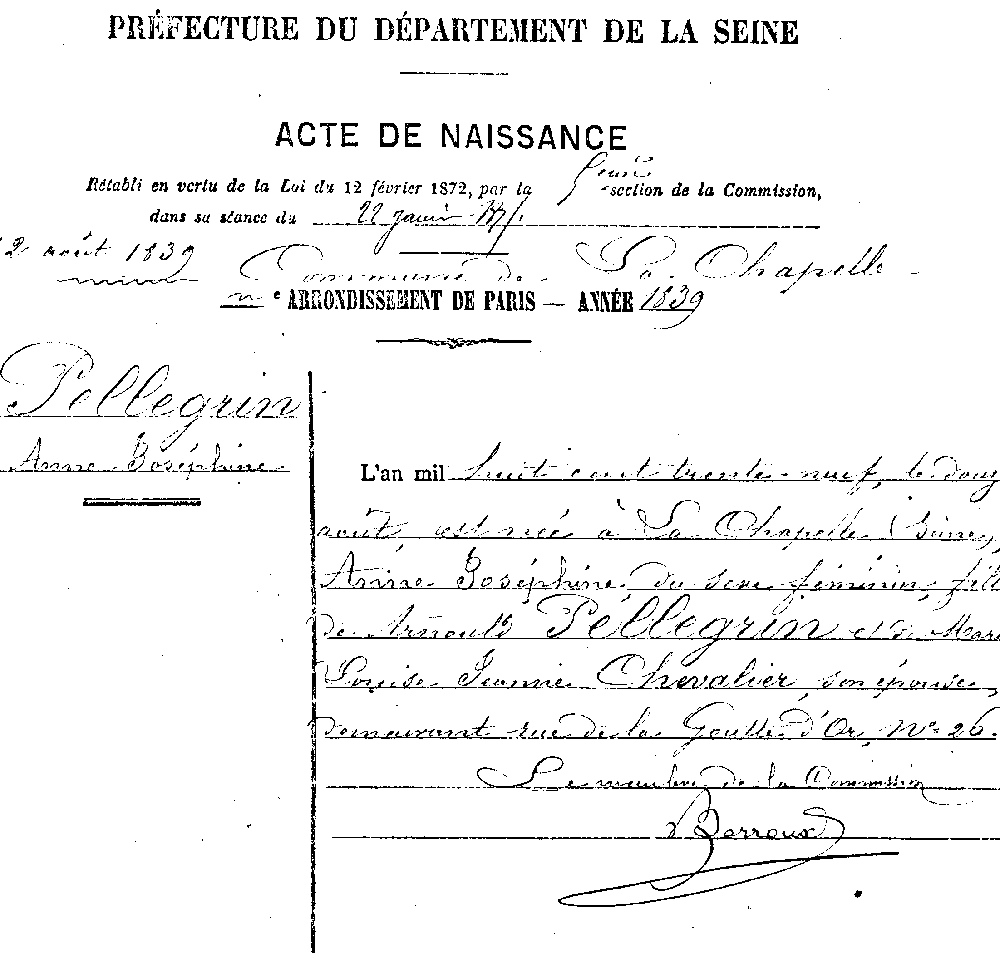 PRÉFECTURE DU DÉPARTEMENT DE LA SEINE
ACTE DE NAISSANCE
Rétabli en vertu de la Loi du 12 février 1872, par la section de la Commission,
dans sa séance du 22 janvier
12 août 1839
Commune de La Chapelle
e ARRONDISSEMENT DE PARIS — ANNÉE 1839
Pellegrin
Anne Joséphine
L'an mil huit cent trente-neuf, le douz
août, est née à La Chapelle (Seine),
Anne Joséphine, du sexe féminin, fille
de Arnould Pellegrin et de Marie
Louise Jeanne Chevalier, son épouse,
demeurant rue de la Goutte d'Or, No 26.
Le membre de la Commission
Barroux